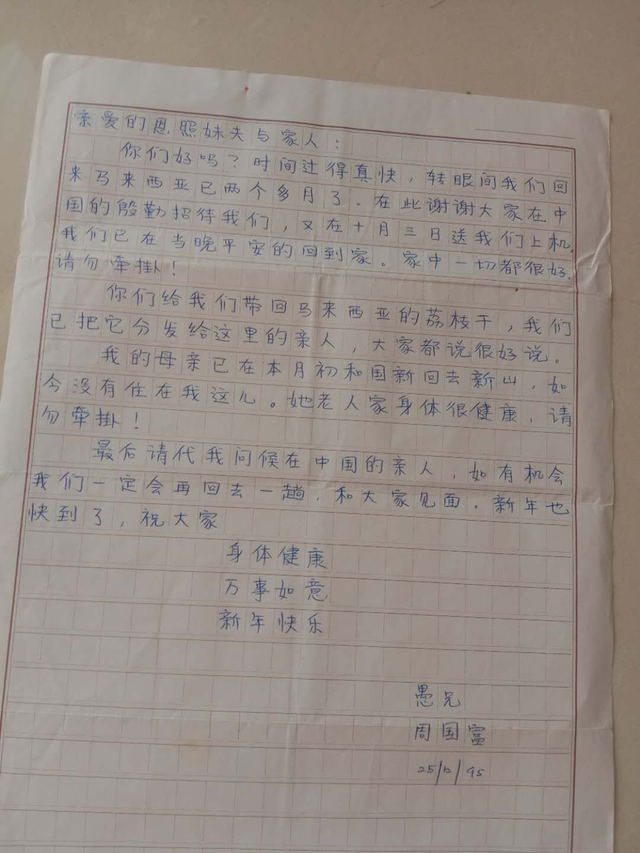 亲爱的恩照妹夫与家人：
你们好吗？时间过得真快，转眼间我们回
来马来西亚已两个多月了。在此谢谢大家在中
国的殷勤招待我们，又在十月三日送我们上机，
我们已在当晚平安的回到家。家中一切都很好，
请勿牵掛！
你们给我们带回马来西亚的荔枝干，我们
已把它分发给这里的亲人，大家都说很好说。
我的母亲已在本月初和国新回去新山，如
今没有住在我这儿。她老人家身体很健康，请
勿牵掛！
最后请代我问候在中国的亲人，如有机会
我们一定会再回去一趟，和大家见面。新年也
快到了，祝大家
身体健康
万事如意
新年快乐
愚兄
周国富
25/12/95